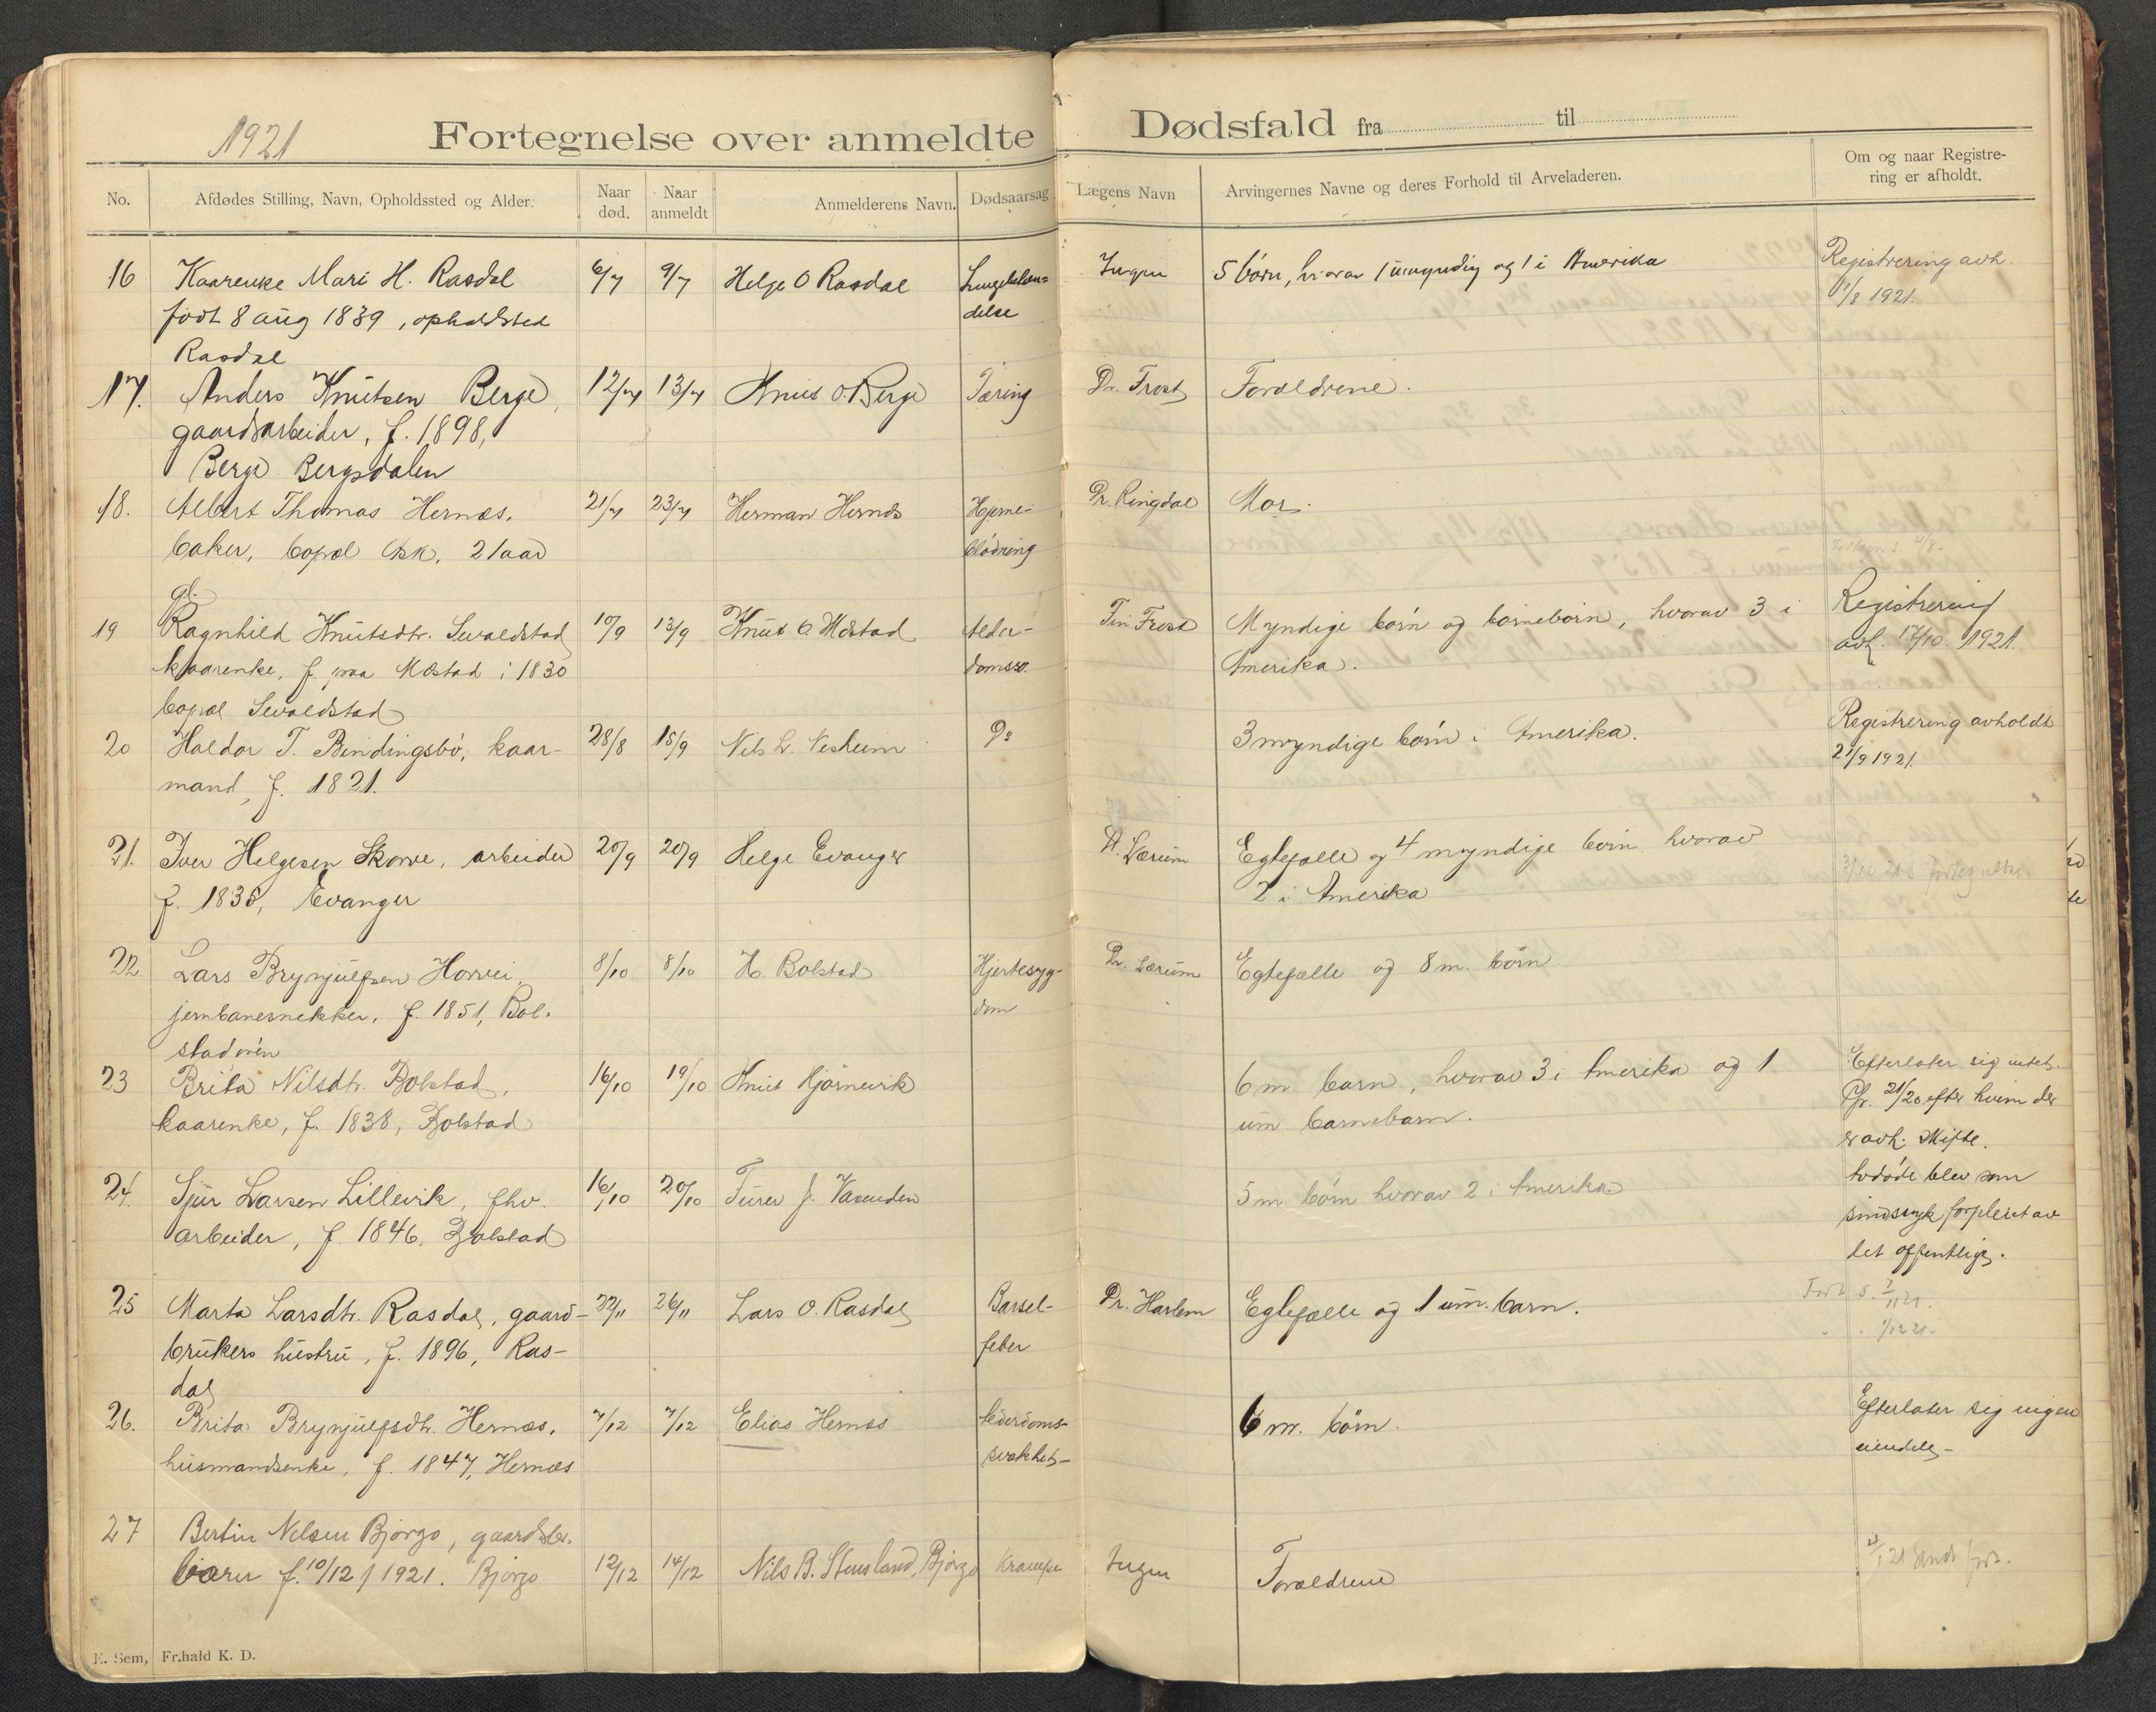 1921
Fortegnelse over anmeldte Dødsfald fra til
No. Afdødes Stilling, Navn, Opholdssted og Alder. Naar død. Naar anmeldt Anmelderens Navn. Dødsaarsag Lægens Navn Arvingernes Navne og deres Forhold til Arveladeren. Om og naar Registrering er afholdt.
16 Kaarenke Mari H. Rasdal 6/7 9/7 Helge O Rasdal Lungebetæn= Ingen 5 børn, hvorav 1 umyndig og 1 i Amerika Registrering avh.
født 8 aug 1839, opholdsted delse 1/8 1921.
Rasdal
17. Anders Knutsen Berge, 12/7 13/7 Knut O. Berge Tæring Dr. Frost Forældrene.
gaardsarbeider, f. 1898,
Berge Bergsdalen
18. Albert Thomas Hernæs, 21/7 23/7 Herman Hernæs Hjerne- Dr. Ringdal Mor.
baker, bopæl Ask, 21 aar blødning
gl.
19 Ragnhild Knutsdtr. Sevaldstad 10/9 13/9 Knut O. Mæstad Alder- Frost Myndige børn og barnebørn, hvorav 3 i Registrering
kaarenke, f. paa Mæstad i 1830 domssv. Amerika. avh. 17/10 1921.
bopæl Sevaldstad
20 Haldor T. Bindingsbø, kaar- 28/8 15/9 Nils L. Vesheim Do 3 myndige børn i Amerika. Registrering avholdt
mand, f. 1821. 21/9 1921.
21. Iver Helgesen Skorve, arbeider 20/9 20/9 Helge Evanger Dr. Lærum Egtefælle og 4 myndige børn hvorav
f. 1835, Evanger 2 i Amerika
22. Lars Brynjulfsen Horvei, 8/10 8/10 H. Bolstad Hjertesyg- Dr. Lærum Egtefælle og 8 m. børn
jernbanesnekker, f. 1851, Bol- dom
stadøren
23 Brita Nilsdtr. Bolstad, 16/10 19/10 Knut Hjørnevik 6 m. barn, hvorav 3 i Amerika og 1 Efterlater sig intet.
kaarenke, f. 1838, Bolstad um barnebarn. 21/20 efter hvem der
er avh. skifte.
24. Sjur Larsen Lillevik, fhv. 16/10 20/10 J. Vasenden 5 m. børn hvorav 2 i Amerika avdøde blev som
arbeider, f. 1846, Bolstad sindssyk forpleiet av
det offentlige.
25 Marta Larsdtr. Rasdal, gaard- 22/11 26/11 Lars O. Rasdal Barsel- Dr. Harlem Egtefælle og 1 um. barn.
brukers hustru, f. 1896, Ras- feber
dal
26. Brita Brynjulfsdtr. Hernæs, 7/12 7/12 Elias Hernæs Alderdoms- 6 m. børn. Efterlater sig ingen
husmandsenke, f. 1847, Hernæs svakhet eiendele
27 Bertin Nilsen Bjørgo, gaardbr.
barn f. 10/12 1921. Bjørgo 12/12 14/12 Nils B. Stensland, Bjørgo Krampe Ingen Forældrene
E. Sem, Fr.hald K. D.